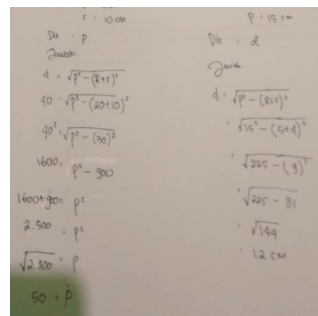 r = 10 cm
Dit = p
Jawab
d = √p² - (R+r)²
40 = √p² - (20+10)²
40² = √p² - (30)²
1600 = p² - 900
1600+900 = p²
2.500 = p²
√2.500 = p
50 = p
p = 15 cm
Dit = d
Jawab
d = √p² - (R+r)²
= √15² - (5+4)²
= √225 - (9)²
= √225 - 81
= √144
= 12 cm